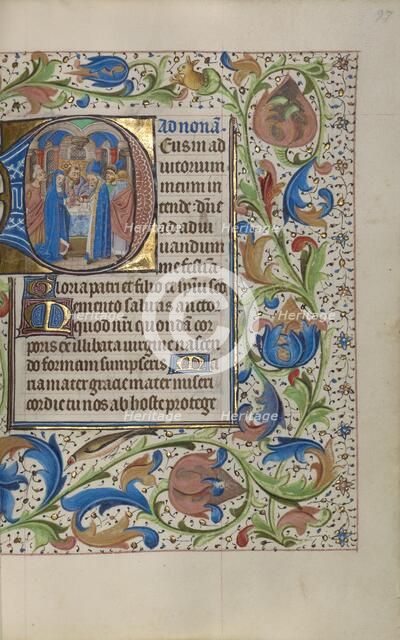 97
Ad nonã.
Eus in ad
iutorium
meum in
tende. dñe
ad adiu
uandum
me festia
Gloria patri et filio et spiu sco
Memento salutis auctor
quod nri quondã cor
poris ex illibata uirgine nascen
do formam sumpseris Ma
ria mater gracie mater miseri
cordie tu nos ab hoste protege
Heritage Heritage